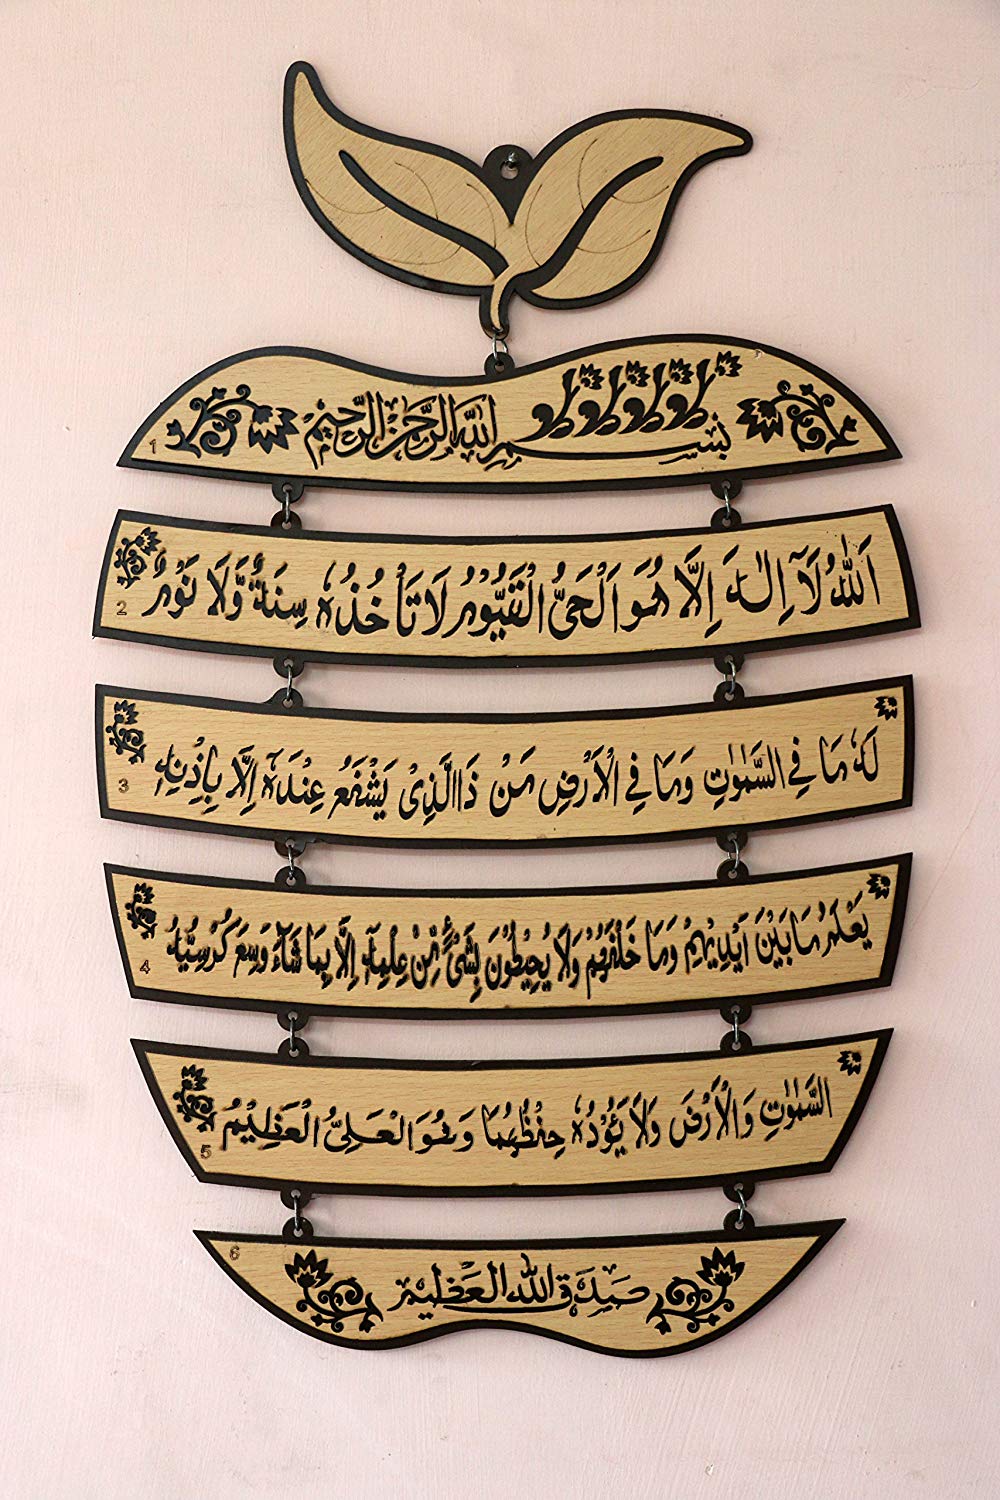 بسم الله الرحمن الرحيم
1
اَللّٰهُ لَاۤ اِلٰهَ اِلَّا هُوَ اَلْحَیُّ الْقَیُّوْمُ لَا تَاْخُذُهٗ سِنَةٌ وَّلَا نَوْمٌ
2
لَهٗ مَا فِی السَّمٰوٰتِ وَمَا فِی الْاَرْضِ مَنْ ذَا الَّذِیْ یَشْفَعُ عِنْدَهٗ اِلَّا بِاِذْنِهٖ
3
یَعْلَمُ مَا بَیْنَ اَیْدِیْهِمْ وَمَا خَلْفَهُمْ وَلَا یُحِیْطُوْنَ بِشَیْءٍ مِّنْ عِلْمِهٖ اِلَّا بِمَا شَآءَ وَسِعَ کُرْسِیُّهُ
4
السَّمٰوٰتِ وَالْاَرْضَ وَلَا یَـُٔوْدُهٗ حِفْظُهُمَا وَهُوَ الْعَلِیُّ الْعَظِیْمُ
5
6
صدق الله العظيم